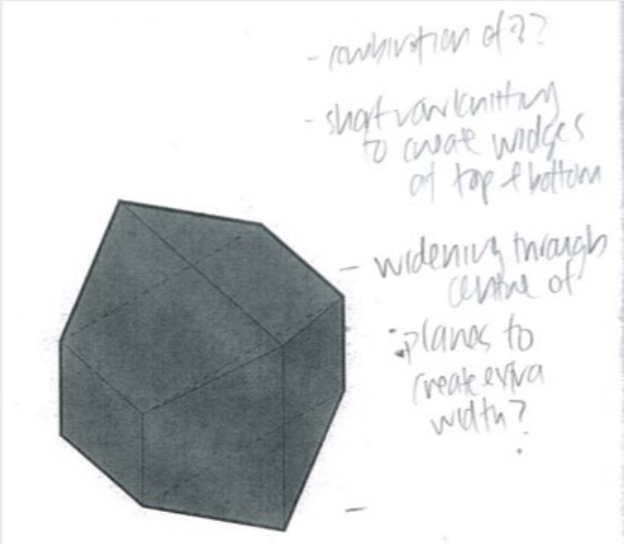 - combination of??
- short row knitting
to create widges
at top & bottom
- widening through
centre of
planes to
create extra
width?
-